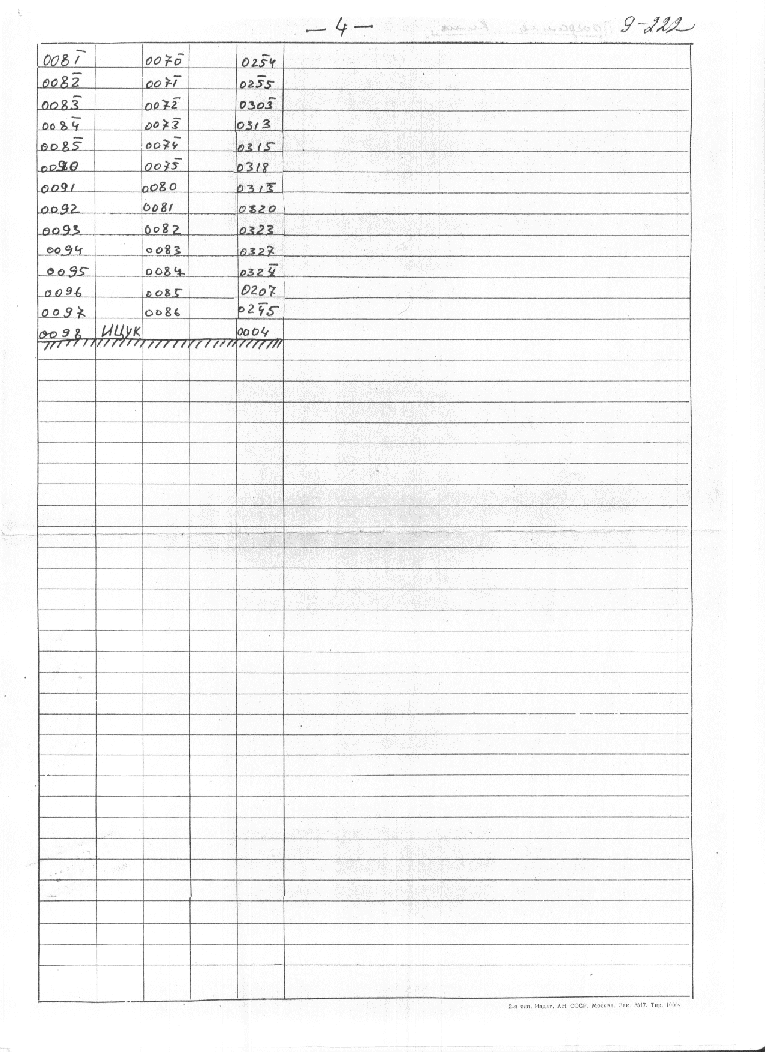 — 4 — 9-222
0081̅ 0070̅ 025̅4
0082̅ 0071̅ 025̅5
0083̅ 0072̅ 0303̅
0084̅ 0073̅ 0313
0085̅ 0074̅ 0315
0090 0075̅ 0318
0091 0080 031̅8
0092 0081 0320
0093 0082 0323
0094 0083 0327
0095 0084 0324̅
0096 0085 0207
0097 0086 024̅5
0098 ИЦУК 0004